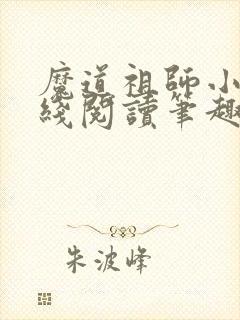 魔道祖師小
綫閱讀筆趣
朱波峰